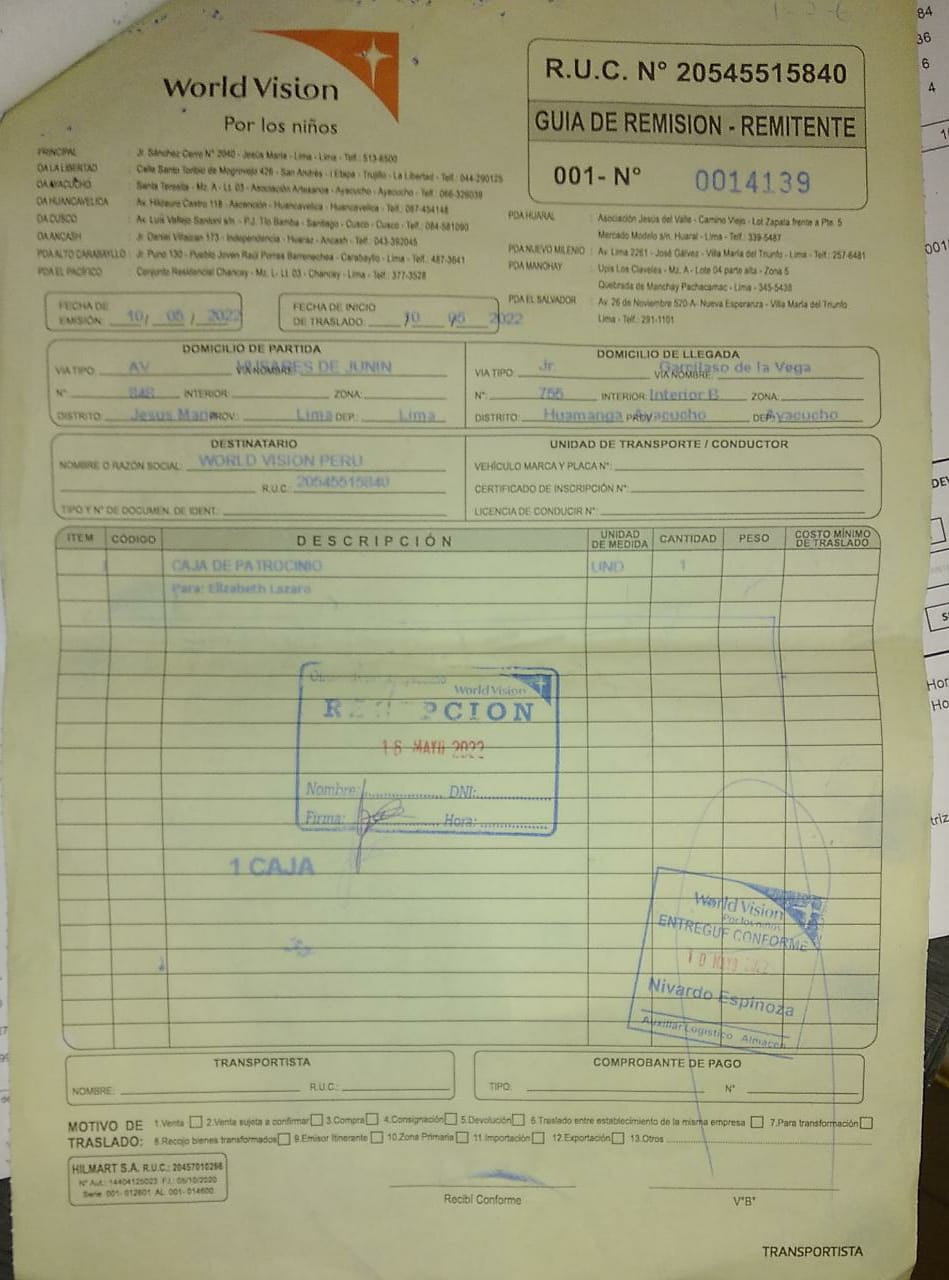 World Vision
Por los niños
R.U.C. N° 20545515840
GUIA DE REMISION - REMITENTE
001- N° 0014139
PRINCIPAL : Jr. Sánchez Cerro N° 2040 - Jesús María - Lima - Lima - Telf.: 513-6500
DA LA LIBERTAD : Calle Santo Toribio de Mogrovejo 426 - San Andrés - I Etapa - Trujillo - La Libertad - Telf.: 044-290125
DA AYACUCHO : Santa Teresita - Mz. A - Lt. 03 - Asociación Artesanos - Ayacucho - Ayacucho - Telf.: 066-326039
DA HUANCAVELICA : Av. Hildauro Castro 118 - Ascención - Huancavelica - Huancavelica - Telf.: 067-454148
DA CUSCO : Av. Luis Vallejo Santoni s/n - P.J. Tío Bamba - Santiago - Cusco - Cusco - Telf.: 084-581090
DA ANCASH : Jr. Daniel Villaizan 173 - Independencia - Huaraz - Ancash - Telf.: 043-392045
PDA ALTO CARABAYLLO : Jr. Puno 130 - Pueblo Joven Raúl Porras Barrenechea - Carabayllo - Lima - Telf.: 487-3641
PDA EL PACÍFICO : Conjunto Residencial Chancay - Mz. L- Lt. 03 - Chancay - Lima - Telf.: 377-3528
PDA HUARAL : Asociación Jesús del Valle - Camino Viejo - Lot Zapata frente a Pte. 5
Mercado Modelo s/n. Huaral - Lima - Telf.: 339-5487
PDA NUEVO MILENIO : Av. Lima 2261 - José Gálvez - Villa María del Triunfo - Lima - Telf.: 257-6481
PDA MANCHAY : Upis Los Claveles - Mz. A - Lote 04 parte alta - Zona 5
Quebrada de Manchay Pachacamac - Lima - 345-5438
PDA EL SALVADOR : Av. 26 de Noviembre 520-A- Nueva Esperanza - Villa María del Triunfo
Lima - Telf.: 291-1101
FECHA DE EMISIÓN: 10/ 05 / 2022
FECHA DE INICIO DE TRASLADO: 10 / 05 / 2022
DOMICILIO DE PARTIDA
VIA TIPO: AV VIA NOMBRE: HUSARES DE JUNIN
N°: 848 INTERIOR: ZONA:
DISTRITO: Jesus Maria PROV.: Lima DEP.: Lima
DOMICILIO DE LLEGADA
VIA TIPO: Jr. VIA NOMBRE: Garcilaso de la Vega
N°: 755 INTERIOR: Interior B ZONA:
DISTRITO: Huamanga PROV.: Ayacucho DEP.: Ayacucho
DESTINATARIO
NOMBRE O RAZÓN SOCIAL: WORLD VISION PERU
R.U.C.: 20545515840
TIPO Y N° DE DOCUMEN. DE IDENT.:
UNIDAD DE TRANSPORTE / CONDUCTOR
VEHÍCULO MARCA Y PLACA N°:
CERTIFICADO DE INSCRIPCIÓN N°:
LICENCIA DE CONDUCIR N°:
ITEM CÓDIGO DESCRIPCIÓN UNIDAD DE MEDIDA CANTIDAD PESO COSTO MÍNIMO DE TRASLADO
CAJA DE PATROCINIO UND 1
Para: Elizabeth Lazaro
World Vision
RECEPCION
16 MAYO 2022
Nombre: DNI:
Firma: Hora:
1 CAJA
World Vision
Por los niños
ENTREGUE CONFORME
10 MAYO 2022
Nivardo Espinoza
Auxiliar Logístico Almacén
TRANSPORTISTA
NOMBRE: R.U.C.:
COMPROBANTE DE PAGO
TIPO: N°
MOTIVO DE TRASLADO: 1.Venta 2.Venta sujeta a confirmar 3.Compra 4.Consignación 5.Devolución 6.Traslado entre establecimiento de la misma empresa 7.Para transformación
8.Recojo bienes transformados 9.Emisor Itinerante 10.Zona Primaria 11.Importación 12.Exportación 13.Otros
HILMART S.A. R.U.C.: 20457010266
N° Aut.: 14404125023 F.I.: 05/10/2020
Serie 001- 012601 AL 001- 014600
Recibí Conforme
V°B°
TRANSPORTISTA